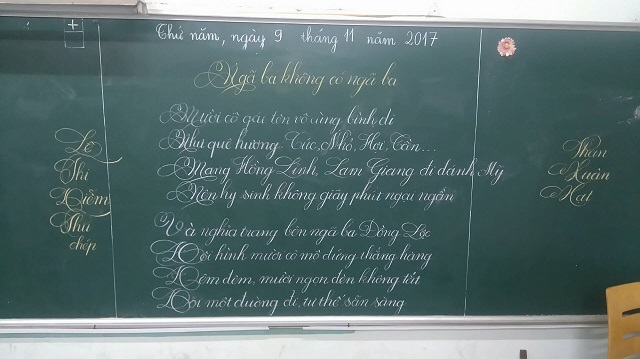 Thứ năm, ngày 9 tháng 11 năm 2017
Ngã ba không có ngã ba
Mười cô gái tên vô cùng bình dị
Như quê hương Cúc, Nhỏ, Hợi, Cần...
Mang Hồng Lĩnh, Lam Giang đi đánh Mỹ
Nên hy sinh không giây phút ngại ngần
Và nghĩa trang bên ngã ba Đồng Lộc
Đội hình mười cô mộ đứng thẳng hàng
Đêm đêm, mười ngọn đèn không tắt
Đội mở đường đi, tư thế sẵn sàng
Lê
Thị
Diễm
Thu
chép
Xuân